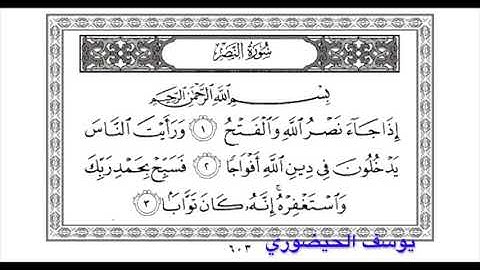 سُورَةُ النَّصْرِ
بِسْمِ اللَّهِ الرَّحْمَٰنِ الرَّحِيمِ
إِذَا جَآءَ نَصْرُ اللَّهِ وَالْفَتْحُ ١ وَرَأَيْتَ النَّاسَ
يَدْخُلُونَ فِي دِينِ اللَّهِ أَفْوَاجًا ٢ فَسَبِّحْ بِحَمْدِ رَبِّكَ
وَاسْتَغْفِرْهُ ۚ إِنَّهُ كَانَ تَوَّابًا ٣
٦٠٣
يوسف الحيضوري